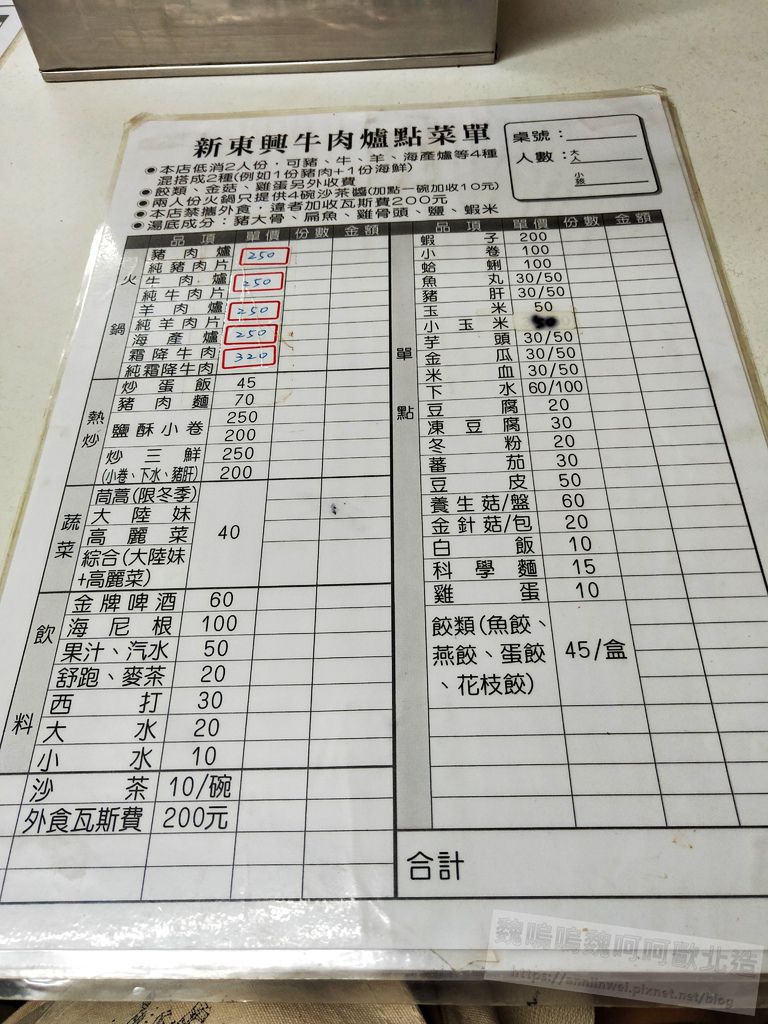 新東興牛肉爐點菜單
桌號：
人數：大人
小孩
●本店低消2人份，可豬、牛、羊、海產爐等4種
混搭成2種(例如1份豬肉+1份海鮮)
●餃類、金菇、雞蛋另外收費
●兩人份火鍋只提供4碗沙茶醬(加點一碗加收10元)
●本店禁攜外食，違者加收瓦斯費200元
●湯底成分：豬大骨、扁魚、雞骨頭、鹽、蝦米
品項 單價 份數 金額
火鍋
豬肉爐 250
純豬肉片
牛肉爐 250
純牛肉片
羊肉爐 250
純羊肉片
海產爐 250
霜降牛肉 320
純霜降牛肉
熱炒
炒蛋飯 45
豬肉麵 70
鹽酥小卷 250
200
炒三鮮 250
(小卷、下水、豬肝) 200
蔬菜
茼蒿(限冬季)
大陸妹
高麗菜 40
綜合(大陸妹
+高麗菜)
飲料
金牌啤酒 60
海尼根 100
果汁、汽水 50
舒跑、麥茶 20
西打 30
大水 20
小水 10
沙茶 10/碗
外食瓦斯費 200元
品項 單價 份數 金額
單點
蝦子 200
小卷 100
蛤蜊 100
魚丸 30/50
豬肝 30/50
玉米 50
小玉米 50
芋頭 30/50
金瓜 30/50
米血 30/50
下水 60/100
豆腐 20
凍豆腐 30
冬粉 20
蕃茄 30
豆皮 50
養生菇/盤 60
金針菇/包 20
白飯 10
科學麵 15
雞蛋 10
餃類(魚餃、
燕餃、蛋餃 45/盒
、花枝餃)
合計
魏嗚嗚魏呵呵歡北踅
https://anniinwei.pixnet.net/blog